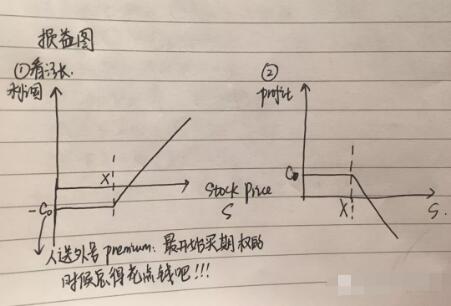 损益图
①看涨.
利润
X
Stock Price
S
-C₀
人送外号 premium: 最开始买期权的
时候总得花点钱吧!!!
②
profit
C₀
X
S.